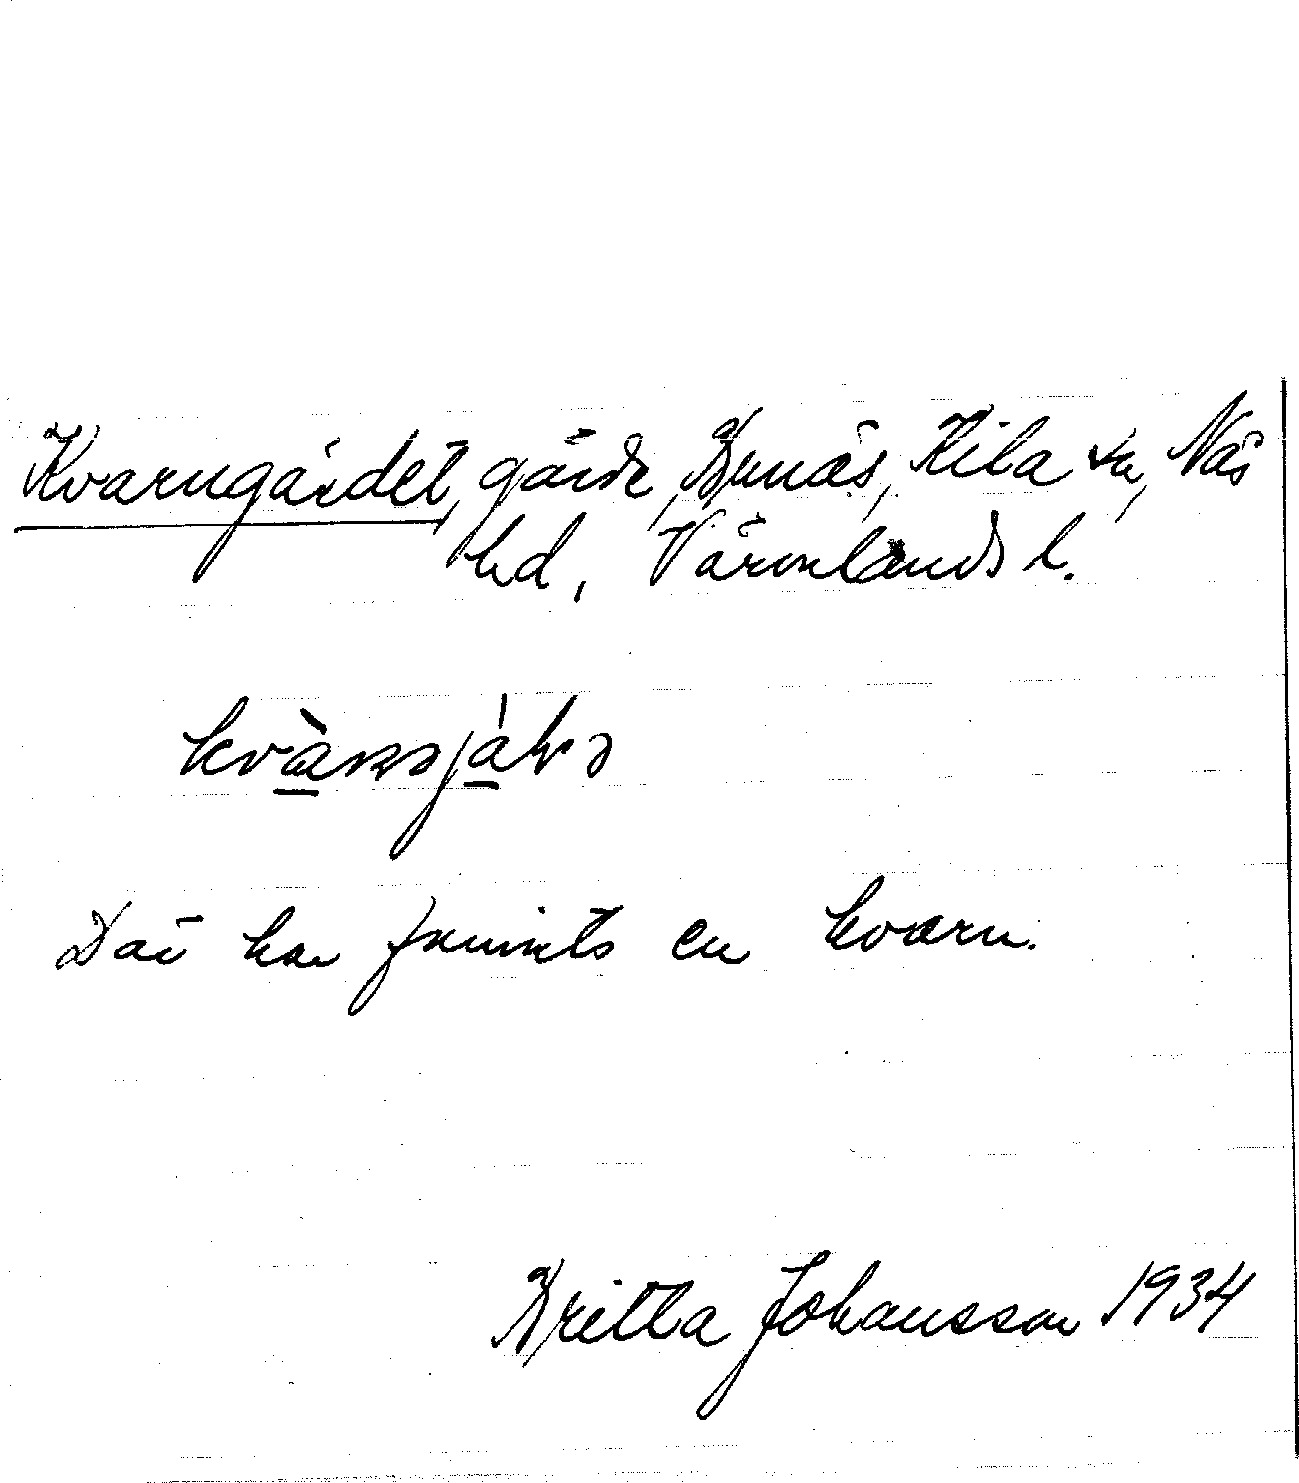 Kvarngärdet, gärde, Brunäs, Kila sn, Näs
hd, Värmlands l.
Där har funnits en kvarn.
Britta Johansson 1934